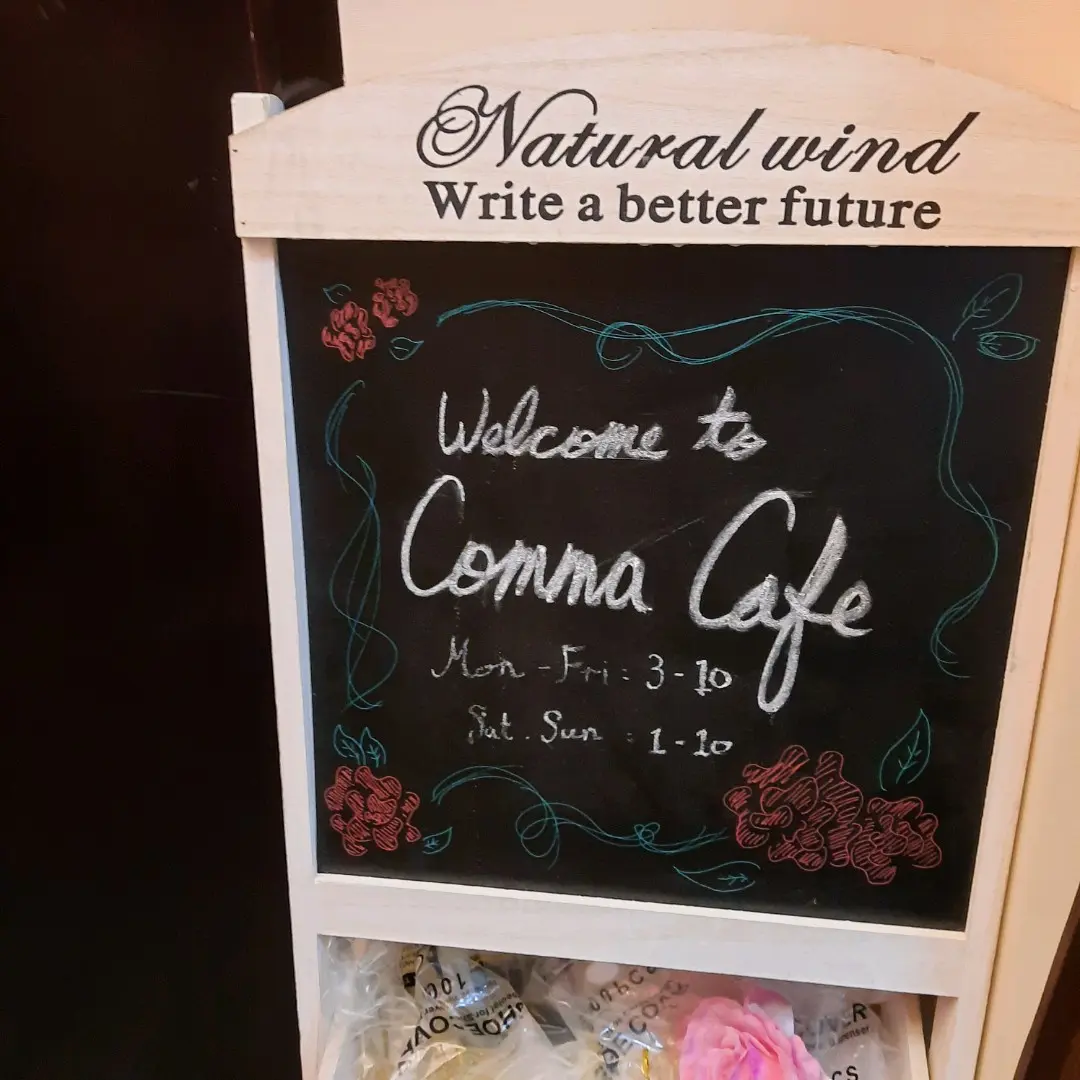 Natural wind
Write a better future
Welcome to
Comma Cafe
Mon - Fri : 3 - 10
Sat . Sun : 1 - 10
100
SHOE COVER
CS